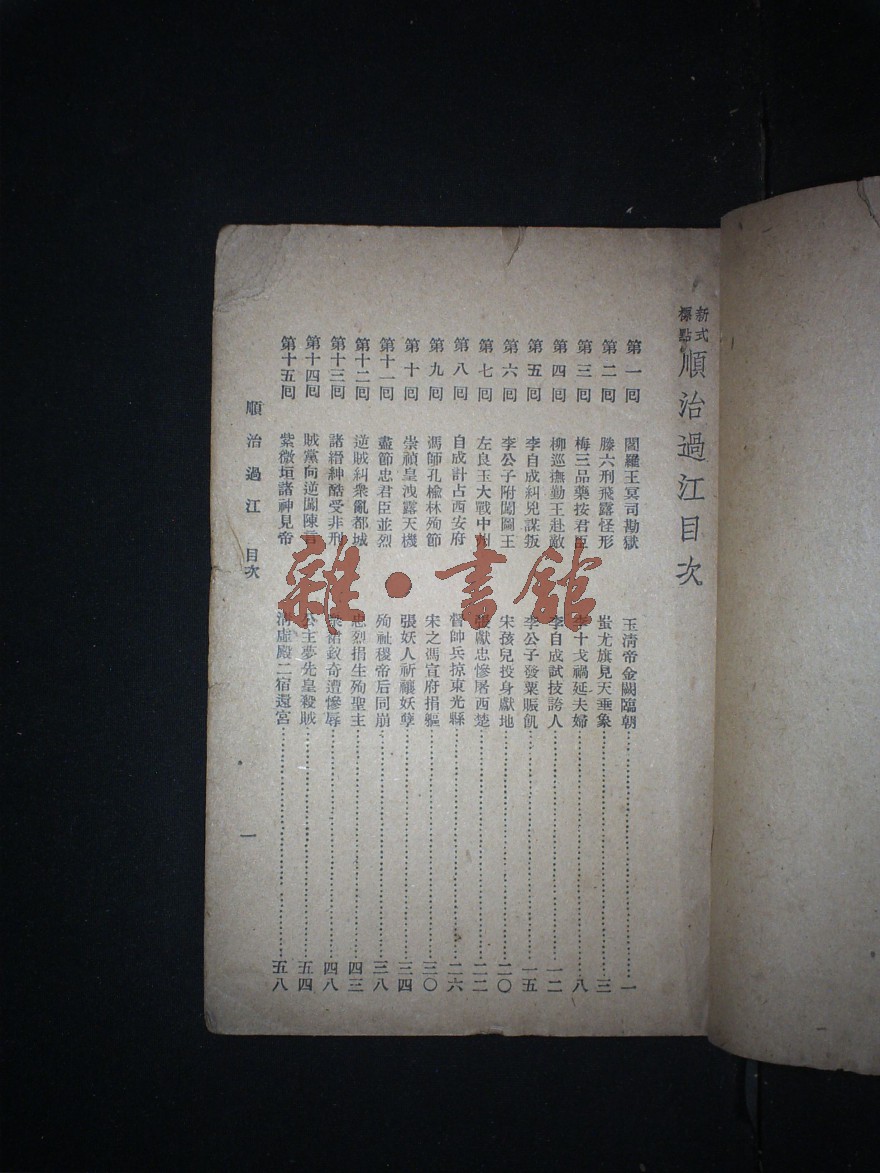 新式標點 順治過江目次
第一回 閻羅王冥司勘獄 玉清帝金闕臨朝 一
第二回 滕六刑飛露怪形 蚩尤旗見天垂象 三
第三回 梅三品藥按君臣 李十戈禍延夫婦 八
第四回 柳巡撫勤王赴敵 李自成試技誇人 一二
第五回 李自成糾兇謀叛 李公子發粟賑飢 一五
第六回 李公子附闖闖王 宋孩兒投身獻地 二〇
第七回 左良玉大戰中州 張獻忠慘屠西楚 二二
第八回 自成計占西安府 督帥兵掠東光縣 二六
第九回 馮師孔楡林殉節 宋之馮宣府捐軀 三〇
第十回 崇禎皇洩露天機 張妖人祈禳妖孽 三四
第十一回 盡節忠君臣並烈 殉祉稷帝后同崩 三八
第十二回 逆賊糾衆亂都城 忠烈捐生殉聖主 四三
第十三回 諸縉紳酷受非刑 裕敕奇遭慘辱 四八
第十四回 賊黨向逆闖陳言 公主夢先皇殺賊 五四
第十五回 紫微垣諸神見帝 清虛殿二宿還宮 五八
順治過江 目次
一
雜·書館